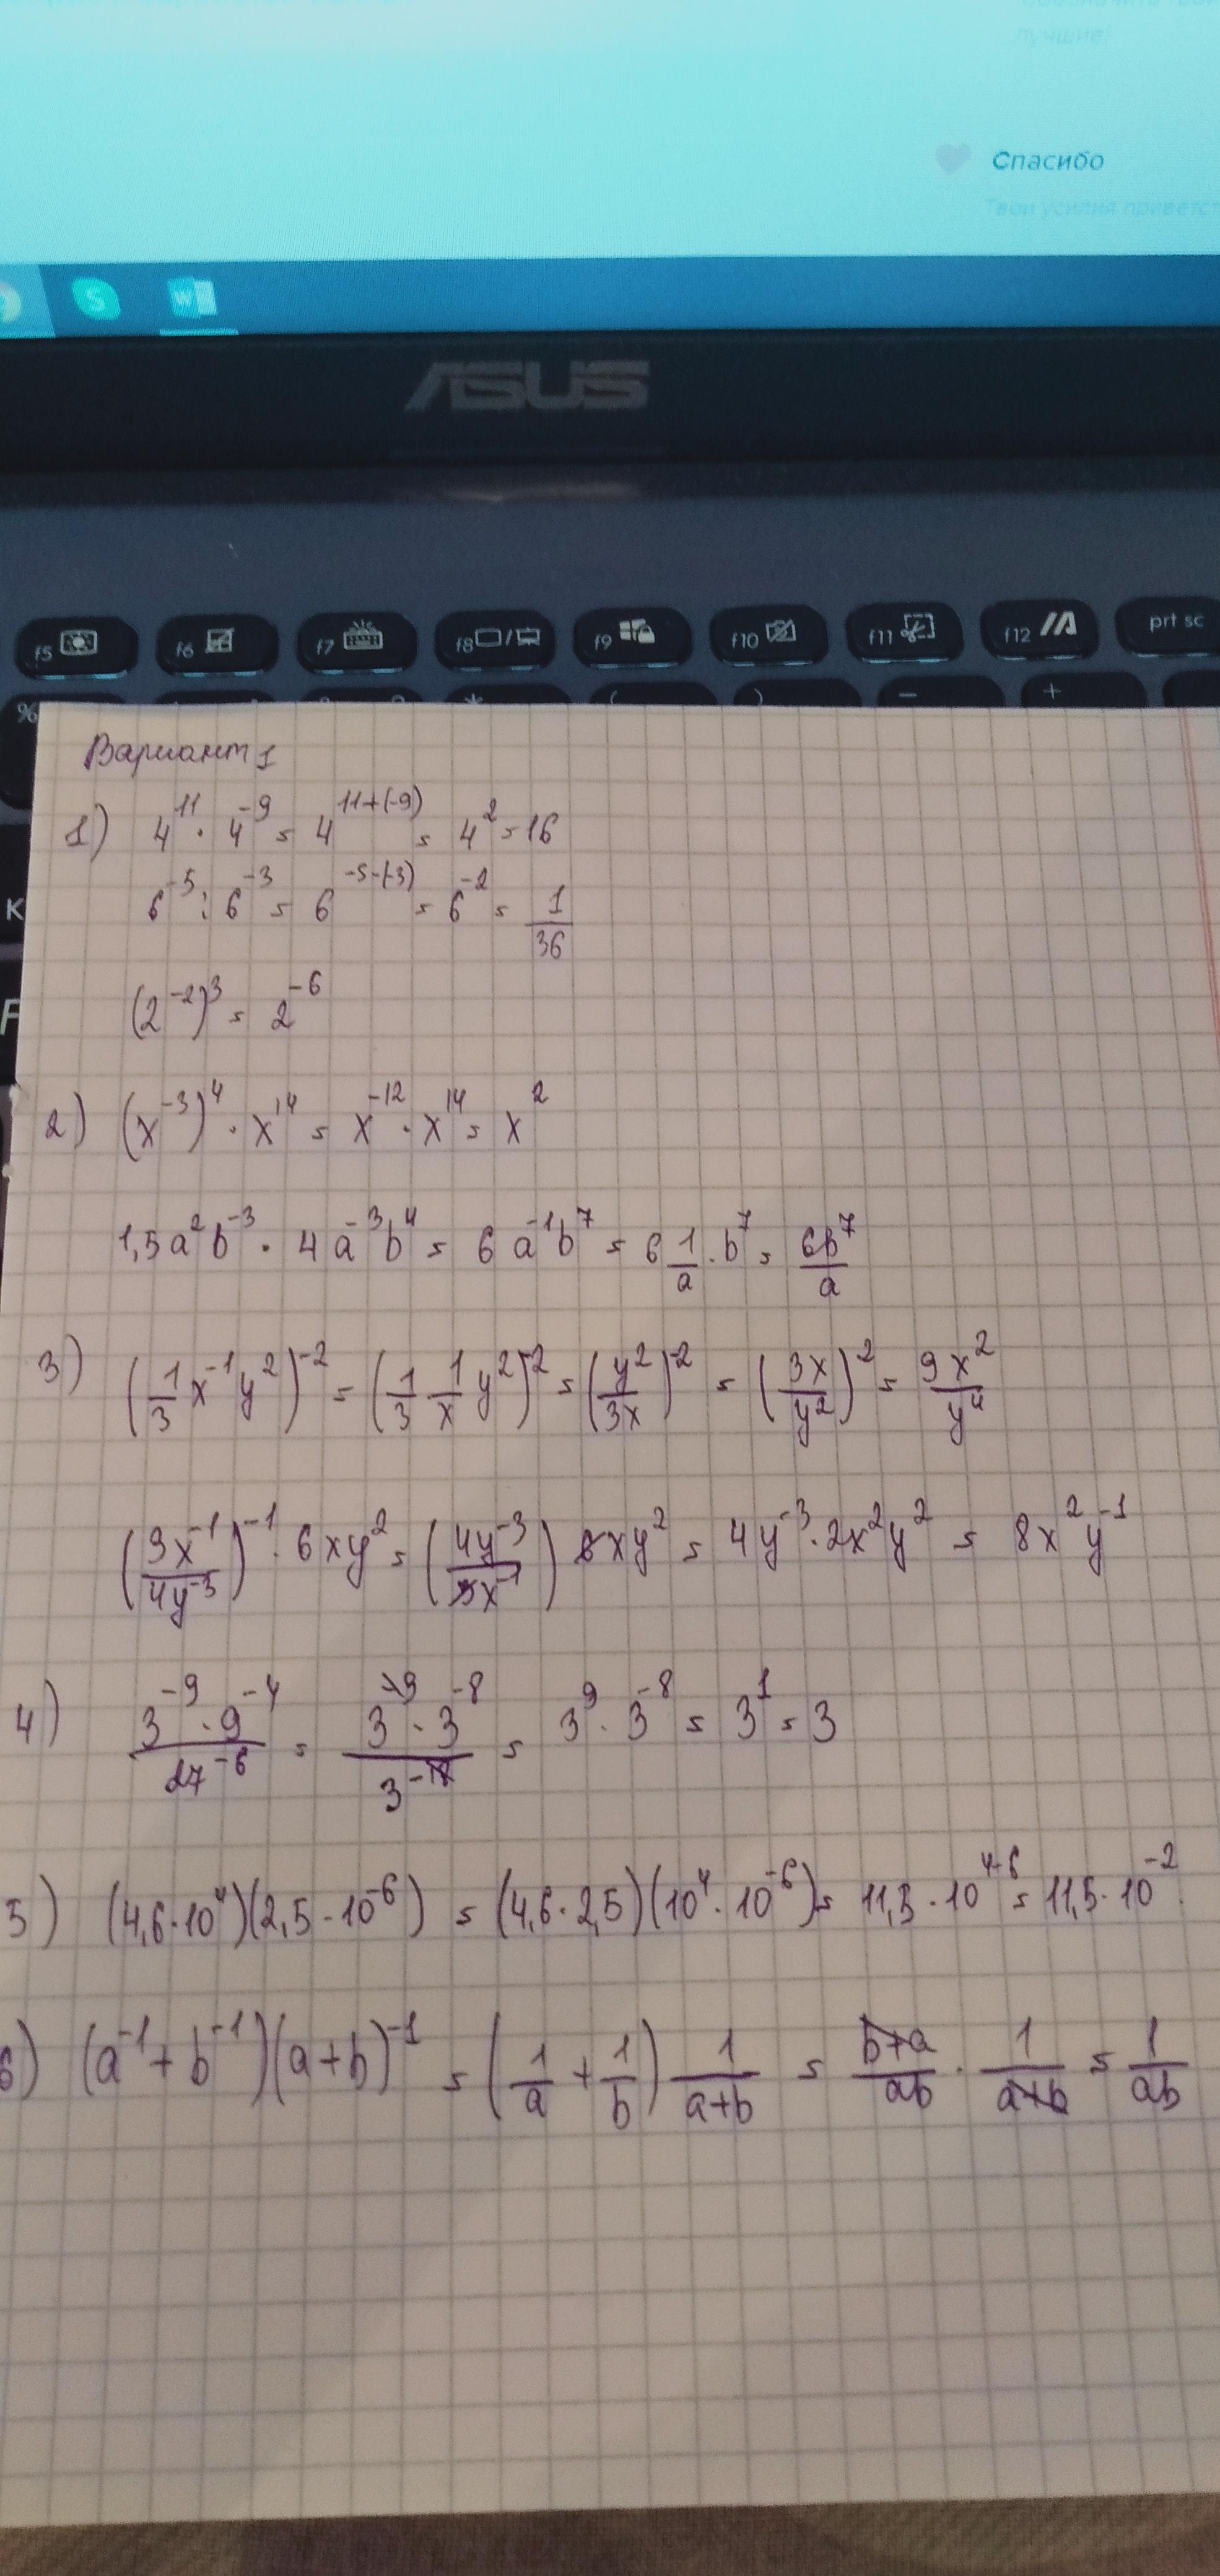 лучшие!
Спасибо
Твои усилия приветст
S
W
ASUS
f5 f6 f7 f8 / f9 f10 f11 f12 prt sc
% * ( ) − +
K
F
Вариант 1
1) 4^11 · 4^-9 = 4^11+(-9) = 4^2 = 16
6^-5 : 6^-3 = 6^-5-(-3) = 6^-2 = 1/36
(2^-2)^3 = 2^-6
2) (x^-3)^4 · x^14 = x^-12 · x^14 = x^2
1,5a^2b^-3 · 4a^-3b^4 = 6a^-1b^7 = 6 1/a · b^7 = 6b^7/a
3) (1/3 x^-1y^2)^-2 = (1/3 1/x y^2)^-2 = (y^2/3x)^-2 = (3x/y^2)^2 = 9x^2/y^4
(3x^-1/4y^-3)^-1 · 6xy^2 = (4y^-3/3x^-1) 6xy^2 = 4y^-3 · 2x^2y^2 = 8x^2y^-1
4) 3^-9 · 9^-4/27^-6 = 3^-9 · 3^-8/3^-18 = 3^9 · 3^-8 = 3^1 = 3
5) (4,6·10^4)(2,5·10^-6) = (4,6·2,5)(10^4·10^-6) = 11,5·10^4-6 = 11,5·10^-2.
6) (a^-1+b^-1)(a+b)^-1 = (1/a + 1/b) 1/a+b = b+a/ab · 1/a+b = 1/ab